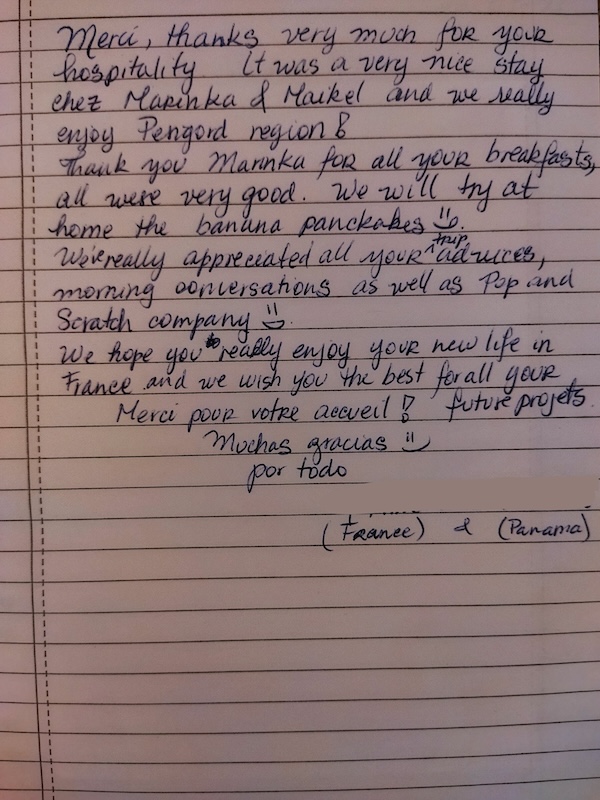 Merci, thanks very much for your
hospitality It was a very nice stay
chez Marinka & Maikel and we really
enjoy Perigord region !
Thank you Marinka for all your breakfasts,
all were very good. We will try at
home the banana panckakes :).
We've really appreciated all your trip advices,
morning conversations as well as Pop and
Scratch company :).
We hope you really enjoy your new life in
France and we wish you the best for all your
future projets.
Merci pour votre accueil !
Muchas gracias :)
por todo
(France) & (Panama)